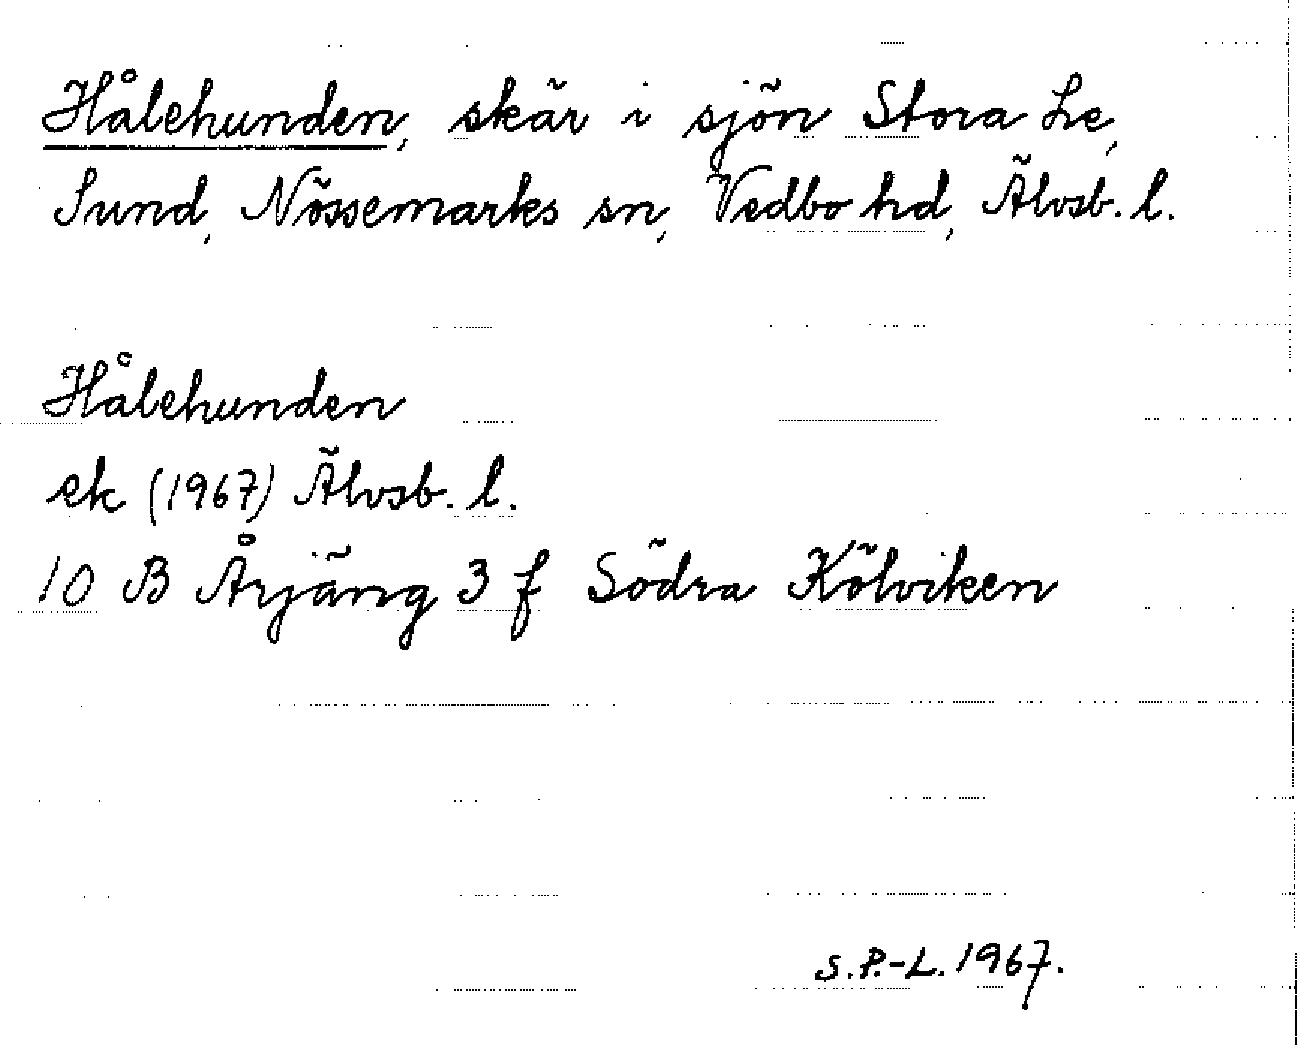 Hålehunden, skär i sjön Stora Le,
Sund, Nössemarks sn, Vedbo hd, Älvsb. l.
Hålehunden
ek (1967) Älvsb. l.
10 B Årjäng 3 f Södra Kölviken
S.P.-L. 1967.